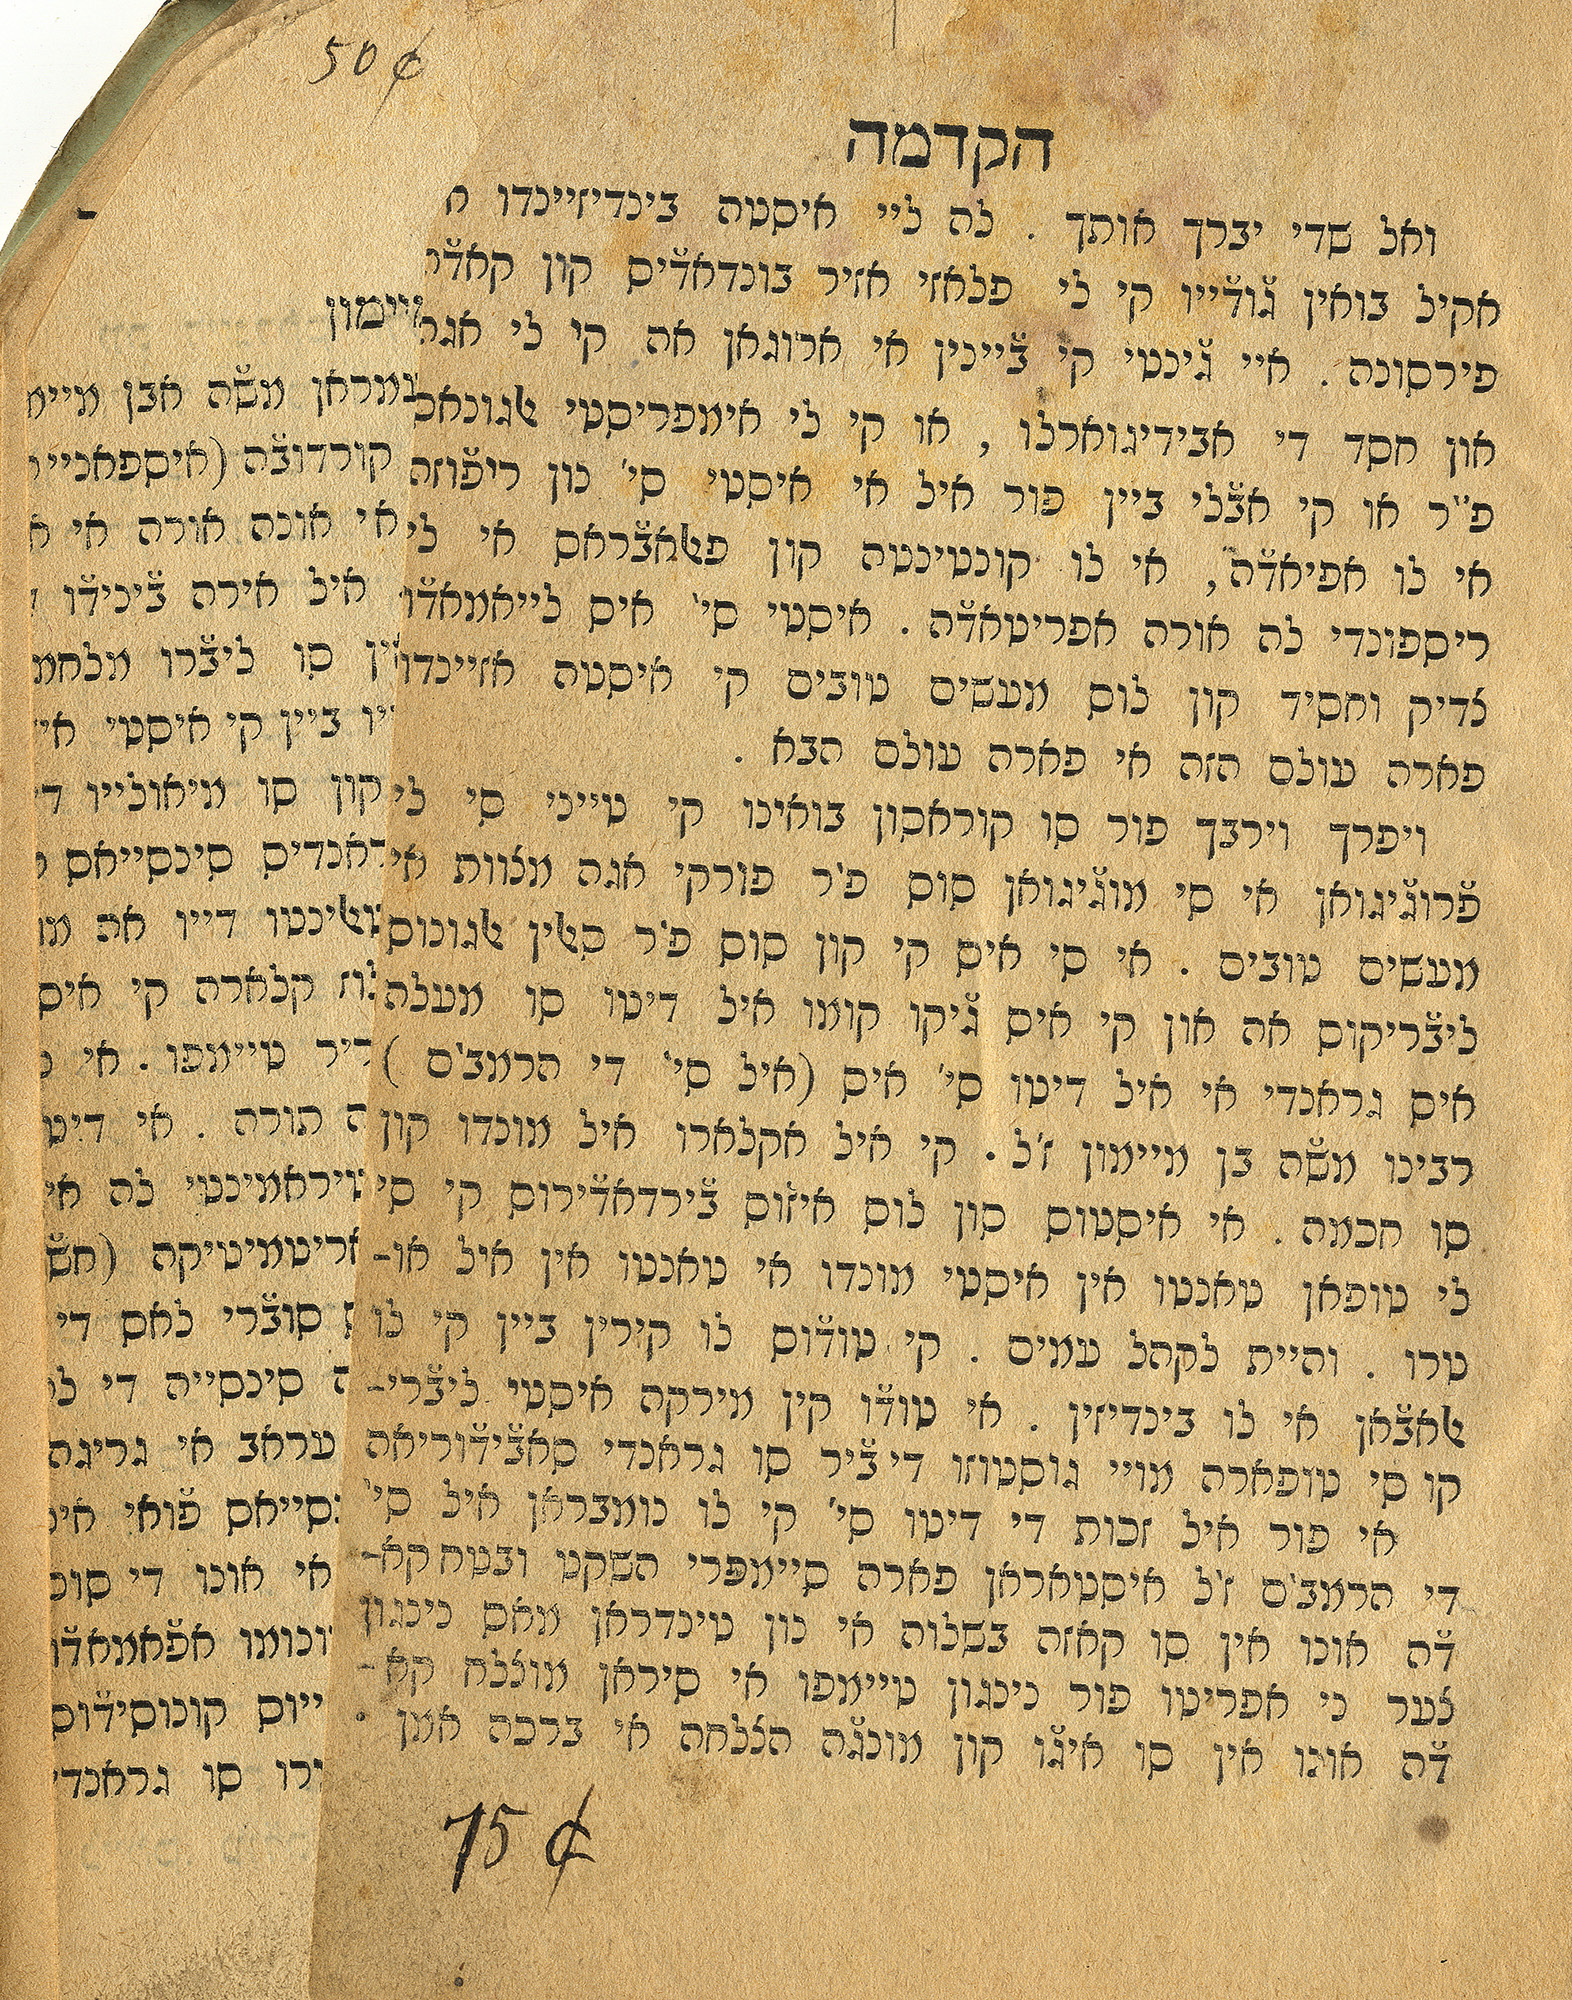 50 ¢
הקדמה
ואל שדי יברך אותך . לה ליי איסטה בינדיזיינדו
אקיל בואין ג̆ודייו קי לי פלאזי אזיר בונדאד̆יס קון קאד̆ה
פירסונה . איי ג̆ינטי קי ב̆ייכין אי ארוגאן אה קי לי אגה
און חסד די אבידיגוארלו , או קי לי אימפריסטי אלגונאס
פ״ר או קי אב̆לי ביין פור איל אי איסטי ס׳ נון ריפ̆וזה
אי לו אפיאד̆ה, אי לו קונטינטה קון פאלאב̆ראס אי לי
ריספונדי לה אורה אפריטאד̆ה . איסטי ס׳ איס לייאמאד̆ו
צדיק וחסיד קון לוס מעשים טובים קי איסטה אזיינדו
פארה עולם הזה אי פארה עולם הבא .
ויפרך וירבך פור סו קוראסון בואינו קי טייני סי לי
פ̆רוג̆יגואן אי סי מוג̆יגואן סוס פ׳ר פורקי אגה מצוות אי
מעשים טובים . אי סי איס קי קון סוס פ׳ר סאלין אלגונוס
ליב̆ריקוס אה און קי איס ג̆יקו קומו איל דיטו סו מעלה
איס גראנדי אי איל דיטו ס׳ איס (איל ס׳ די הרמב׳ם )
רבינו מש̆ה בן מיימון ז׳ל . קי איל אקלארו איל מונדו קון
סו חכמה . אי איסטוס סון לוס איזוס ב̆ירדאד̆ירוס קי סי
לי טופאן טאנטו אין איסטי מונדו אי טאנטו אין איל או-
טרו . והיית לקהל עמים . קי טוד̆וס לו קירין ביין קי לו
אלאב̆אן אי לו בינדיזין . אי טוד̆ו קין מירקה איסטי ליב̆רי-
קו סי טופארה מויי גוסטוזו די ב̆יר סו גראנדי סאב̆יד̆וריאה
אי פור איל זכות די דיטו ס׳ קי לו נומבראן איל ס׳
די הרמב׳ם ז׳ל איסטאראן פארה סיימפרי השקט ובטח קא-
ד̆ה אונו אין סו קאזה בשלוה אי נון טינדראן מאס נינגון
צער ני אפריטו פור נינגון טיימפו אי סיראן מוצלח קא-
ד̆ה אונו אין סו איג̆ו קון מונג̆ה הצלחה אי ברכה אמן .
75 ¢
מש̆ה אבן
קורדוב̆ה
אי אונה אורה אי
איל אירה ב̆יניד̆ו
סו ליב̆רו
ביין קי איסטי
קון סו מיאולייו
סינסייאס
דייו אה
קלארה קי
טיימפו . אי
תורה . אי
לה
סוב̆רי לאס די
סינסייה די
ערב אי
פ̆ואי
אי אונו די
אפ̆אמאד̆ו
קונוסיד̆וס
סו